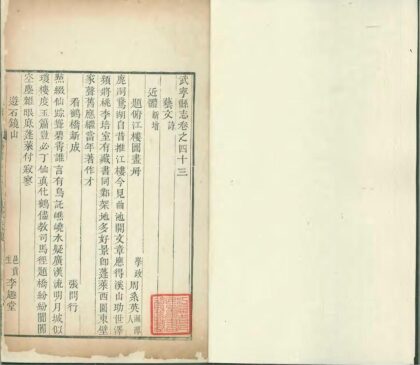 武寧縣志卷之四十三
藝文 詩
近體 新增
題俯江樓圖畫冊 學政 周系英 湘潭人
鹿洞鵞湖自昔推江樓今見曲池開文章應得溪山助世澤
須將桃李培室有藏書同鄴架地多好景卽蓬萊西園東壁
家聲舊應繼當年著作才
看鶴橋新成 張問行
點綴仙踪聳碧霄誰言有鳥託嶕嶢水疑廣漢流明月城似
瓊樓度玉簫豈必丁仙眞化鶴儘教司馬徑題橋紛紛闤闠
空塵雜眼底蓬萊付寂寥
遊石鏡山 邑貢生 李遜堂